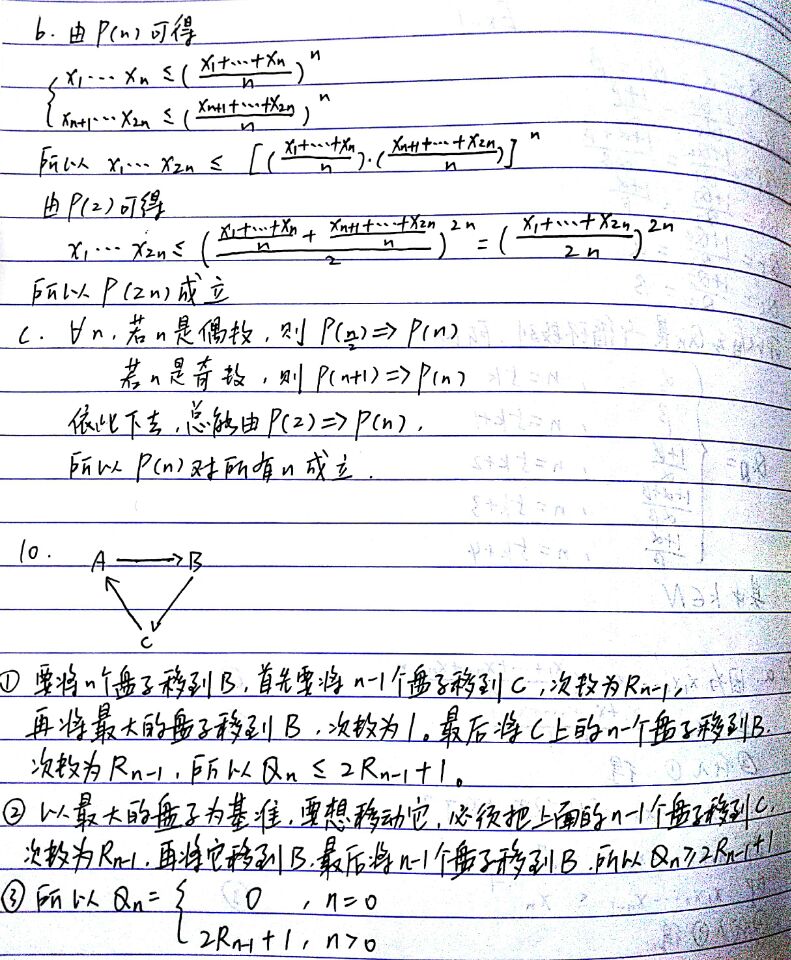 b. 由 P(n) 可得
{ x₁⋯xₙ ≤ ( (x₁+⋯+xₙ)/n )ⁿ
{ xₙ₊₁⋯x₂ₙ ≤ ( (xₙ₊₁+⋯+x₂ₙ)/n )ⁿ
所以 x₁⋯x₂ₙ ≤ [ ( (x₁+⋯+xₙ)/n )·( (xₙ₊₁+⋯+x₂ₙ)/n ) ]ⁿ
由 P(2) 可得
x₁⋯x₂ₙ ≤ ( ( (x₁+⋯+xₙ)/n + (xₙ₊₁+⋯+x₂ₙ)/n )/2 )²ⁿ = ( (x₁+⋯+x₂ₙ)/2n )²ⁿ
所以 P(2n) 成立
c. ∀n, 若n是偶数, 则 P(n/2) => P(n)
若n是奇数, 则 P(n+1) => P(n)
依此下去, 总能由 P(2) => P(n).
所以 P(n) 对所有n成立.
10. A B
C
① 要将n个盘子移到B, 首先要将 n-1个盘子移到C, 次数为Rₙ₋₁,
再将最大的盘子移到B, 次数为1。最后将C上的n-1个盘子移到B.
次数为Rₙ₋₁, 所以 Qₙ ≤ 2Rₙ₋₁+1。
② 以最大的盘子为基准, 要想移动它, 必须把上面的n-1个盘子移到C,
次数为Rₙ₋₁, 再将它移到B, 最后将n-1个盘子移到B. 所以 Qₙ≥2Rₙ₋₁+1
③ 所以 Qₙ = { 0 , n=0
2Rₙ₋₁+1, n>0